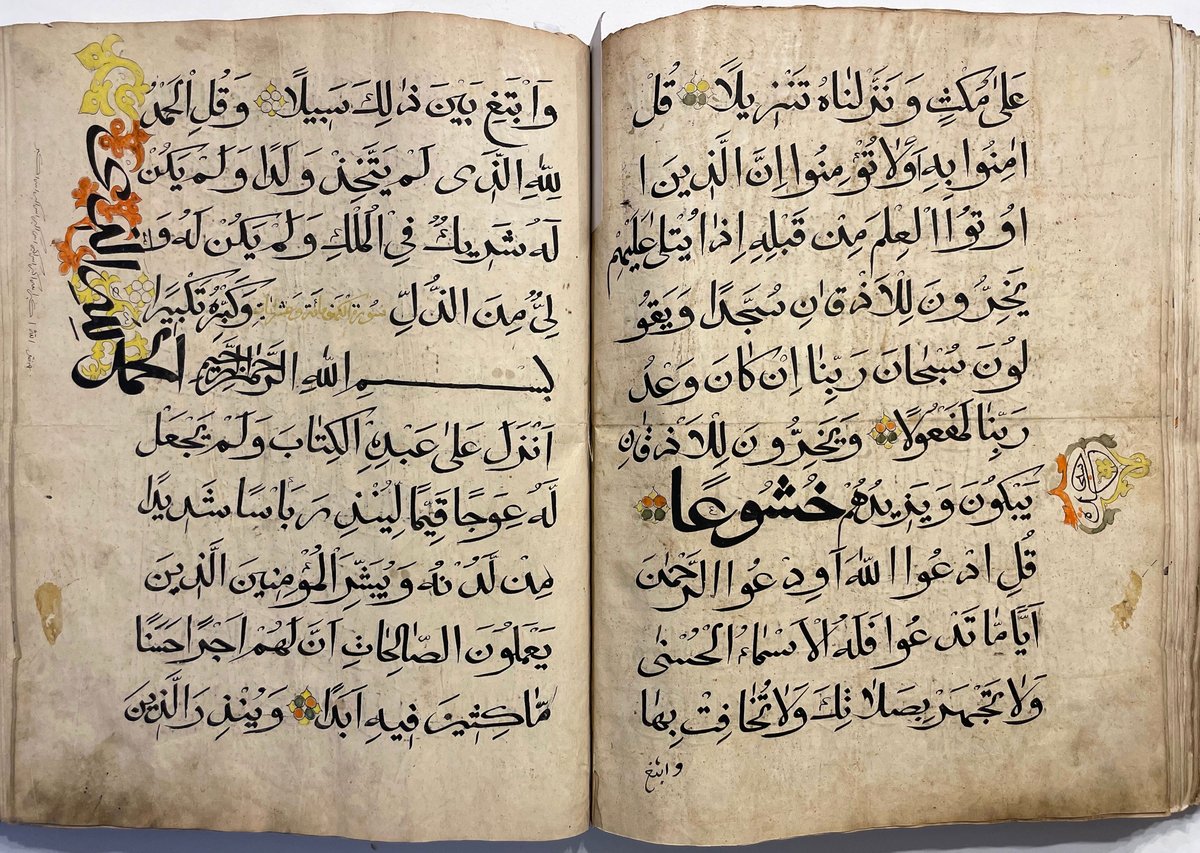 عَلىٰ مُكثٍ وَ نَزَّلنَاهُ تَنزِيلًا قُل
اٰمِنُوا بِهِ اَوَلَا تُؤمِنُوا اِنَّ الَّذِينَ ا
وُتُوا الْعِلمَ مِن قَبلِهِ اِذَا يُتلىٰ عَلَيهِم
يَخِرُّونَ لِلاَذقَانِ سُجَّدًا وَيَقُو
لُونَ سُبْحَانَ رَبِّنَا اِن كَانَ وَعْدُ
رَبِّنَا لَمَفْعُولًا وَيَخِرُّونَ لِلاَذقَانِ
يَبكُونَ وَيَزِيدُهُم خُشُوعًا
قُلِ ادْعُوا اللّٰهَ اَوِ دْعُوا الرَّحمٰنَ
اَيًّا مَّا تَدْعُوا فَلَهُ الْاَسمَاءُ الْحُسْنىٰ
وَلَا تَجهَر بِصَلَاتِكَ وَلَا تُخَافِت بِهَا
وابتغ
وَابْتَغِ بَيْنَ ذٰلِكَ سَبِيلًا وَقُلِ الْحَمدُ
لِلّٰهِ الَّذِى لَم يَتَّخِذ وَلَدًا وَلَم يَكُن
لَهُ شَرِيكٌ فِي الْمُلكِ وَلَم يَكُن لَهُ وَ
لِيٌّ مِنَ الذُّلِّ وَكَبِّرهُ تَكبِيرًا
بِسْمِ اللّٰهِ الرَّحمٰنِ الرَّحِيمِ الْحَمدُ
لِلّٰهِ الَّذِى
اَنْزَلَ عَلىٰ عَبْدِهِ الْكِتَابَ وَلَم يَجعَل
لَهُ عِوَجًا قَيِّمًا لِيُنذِرَ بَاسًا شَدِيدًا
مِن لَدُنهُ وَيُبَشِّرَ الْمُؤمِنِينَ الَّذِينَ
يَعمَلُونَ الصَّالِحَاتِ اَنَّ لَهُم اَجْرًا حَسَنًا
مَّاكِثِينَ فِيهِ اَبَدًا وَيُنذِرَ الَّذِينَ